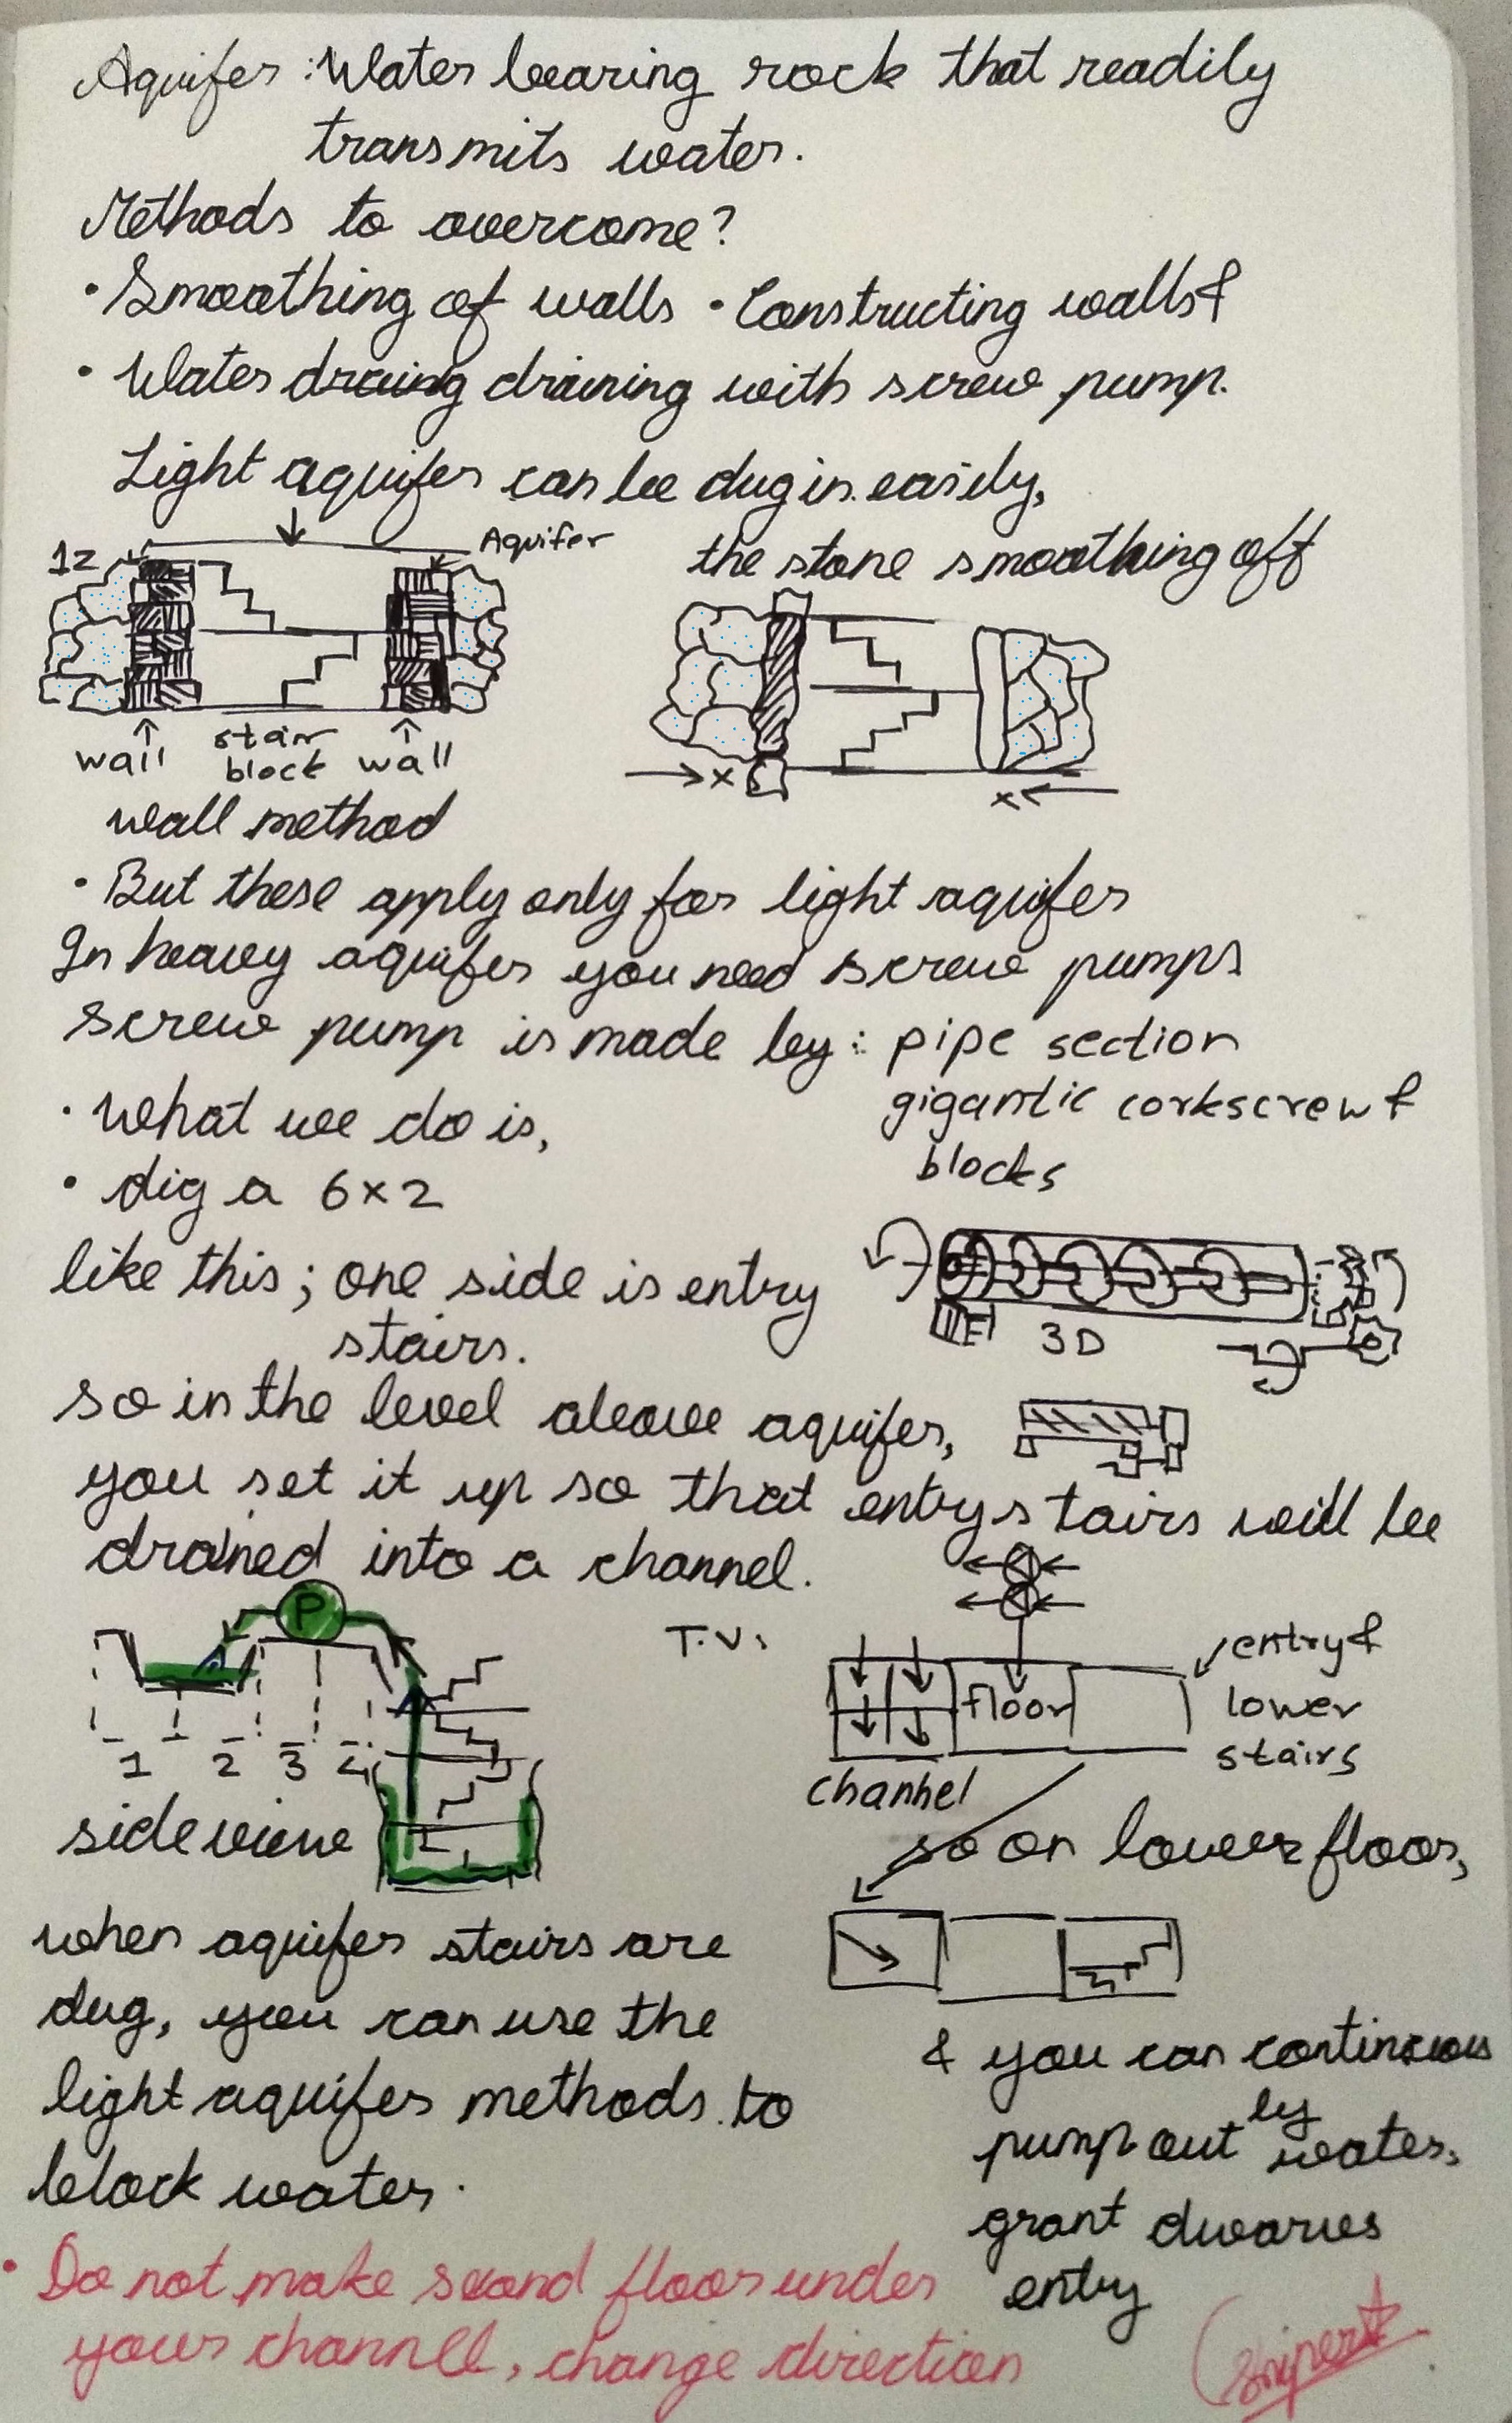 Aquifer : Water bearing rock that readily
transmits water.
Methods to overcome?
· Smoothing of walls · Constructing walls &
· Water draining with screw pump.
Light aquifer can be dug in easily,
1z
Aquifer
the stone smoothing off
wall stair block wall
x x
wall method
· But these apply only for light aquifer
In heavy aquifer you need screw pumps
screw pump is made by : pipe section
gigantic corkscrew &
blocks
· What we do is,
· dig a 6×2
like this ; one side is entry
stairs.
3D
so in the level above aquifer,
you set it up so that entry stairs will be
drained into a channel.
P
1 2 3 4
side view
T.V.
floor
entry &
lower
stairs
channel
so on lower floor,
when aquifer stairs are
dug, you can use the
light aquifer methods to
block water.
& you can continuous
ly
pump out water,
grant dwarves
entry
· Do not make second floor under
your channel, change direction